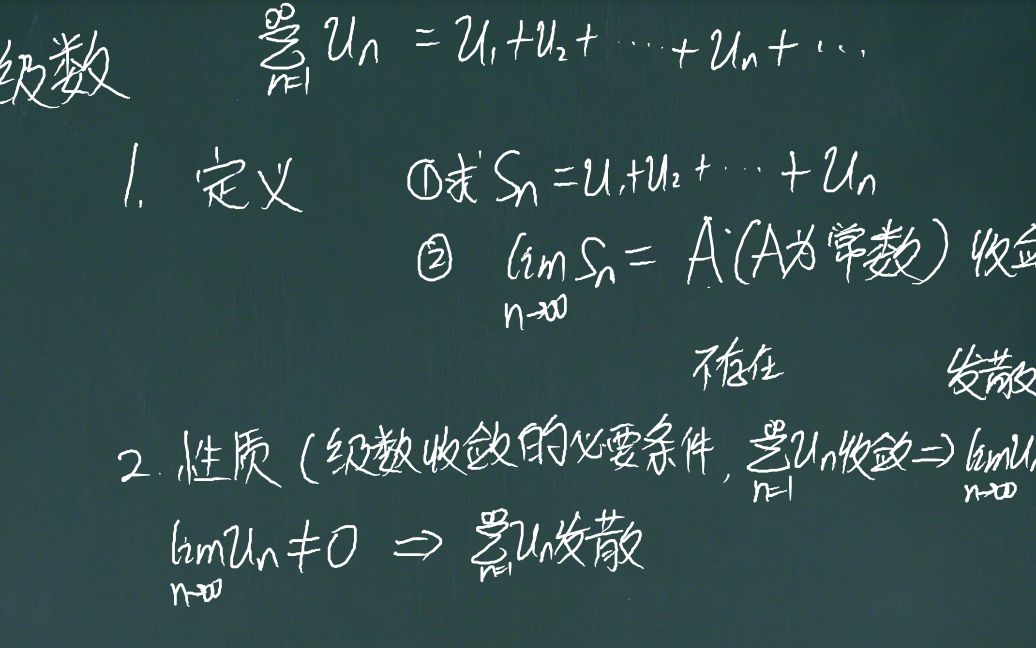 级数 ∞∑n=1 Un = U₁+U₂+ ····· +Un+ ···
1. 定义 ①求 Sn=U₁+U₂+ ··· +Un
② lim n→∞ Sn = A (A为常数) 收敛
不存在 发散
2. 性质 (级数收敛的必要条件, ∞∑n=1 Un收敛⇒ lim n→∞ U
lim n→∞ Un≠0 ⇒ ∞∑n=1 Un发散